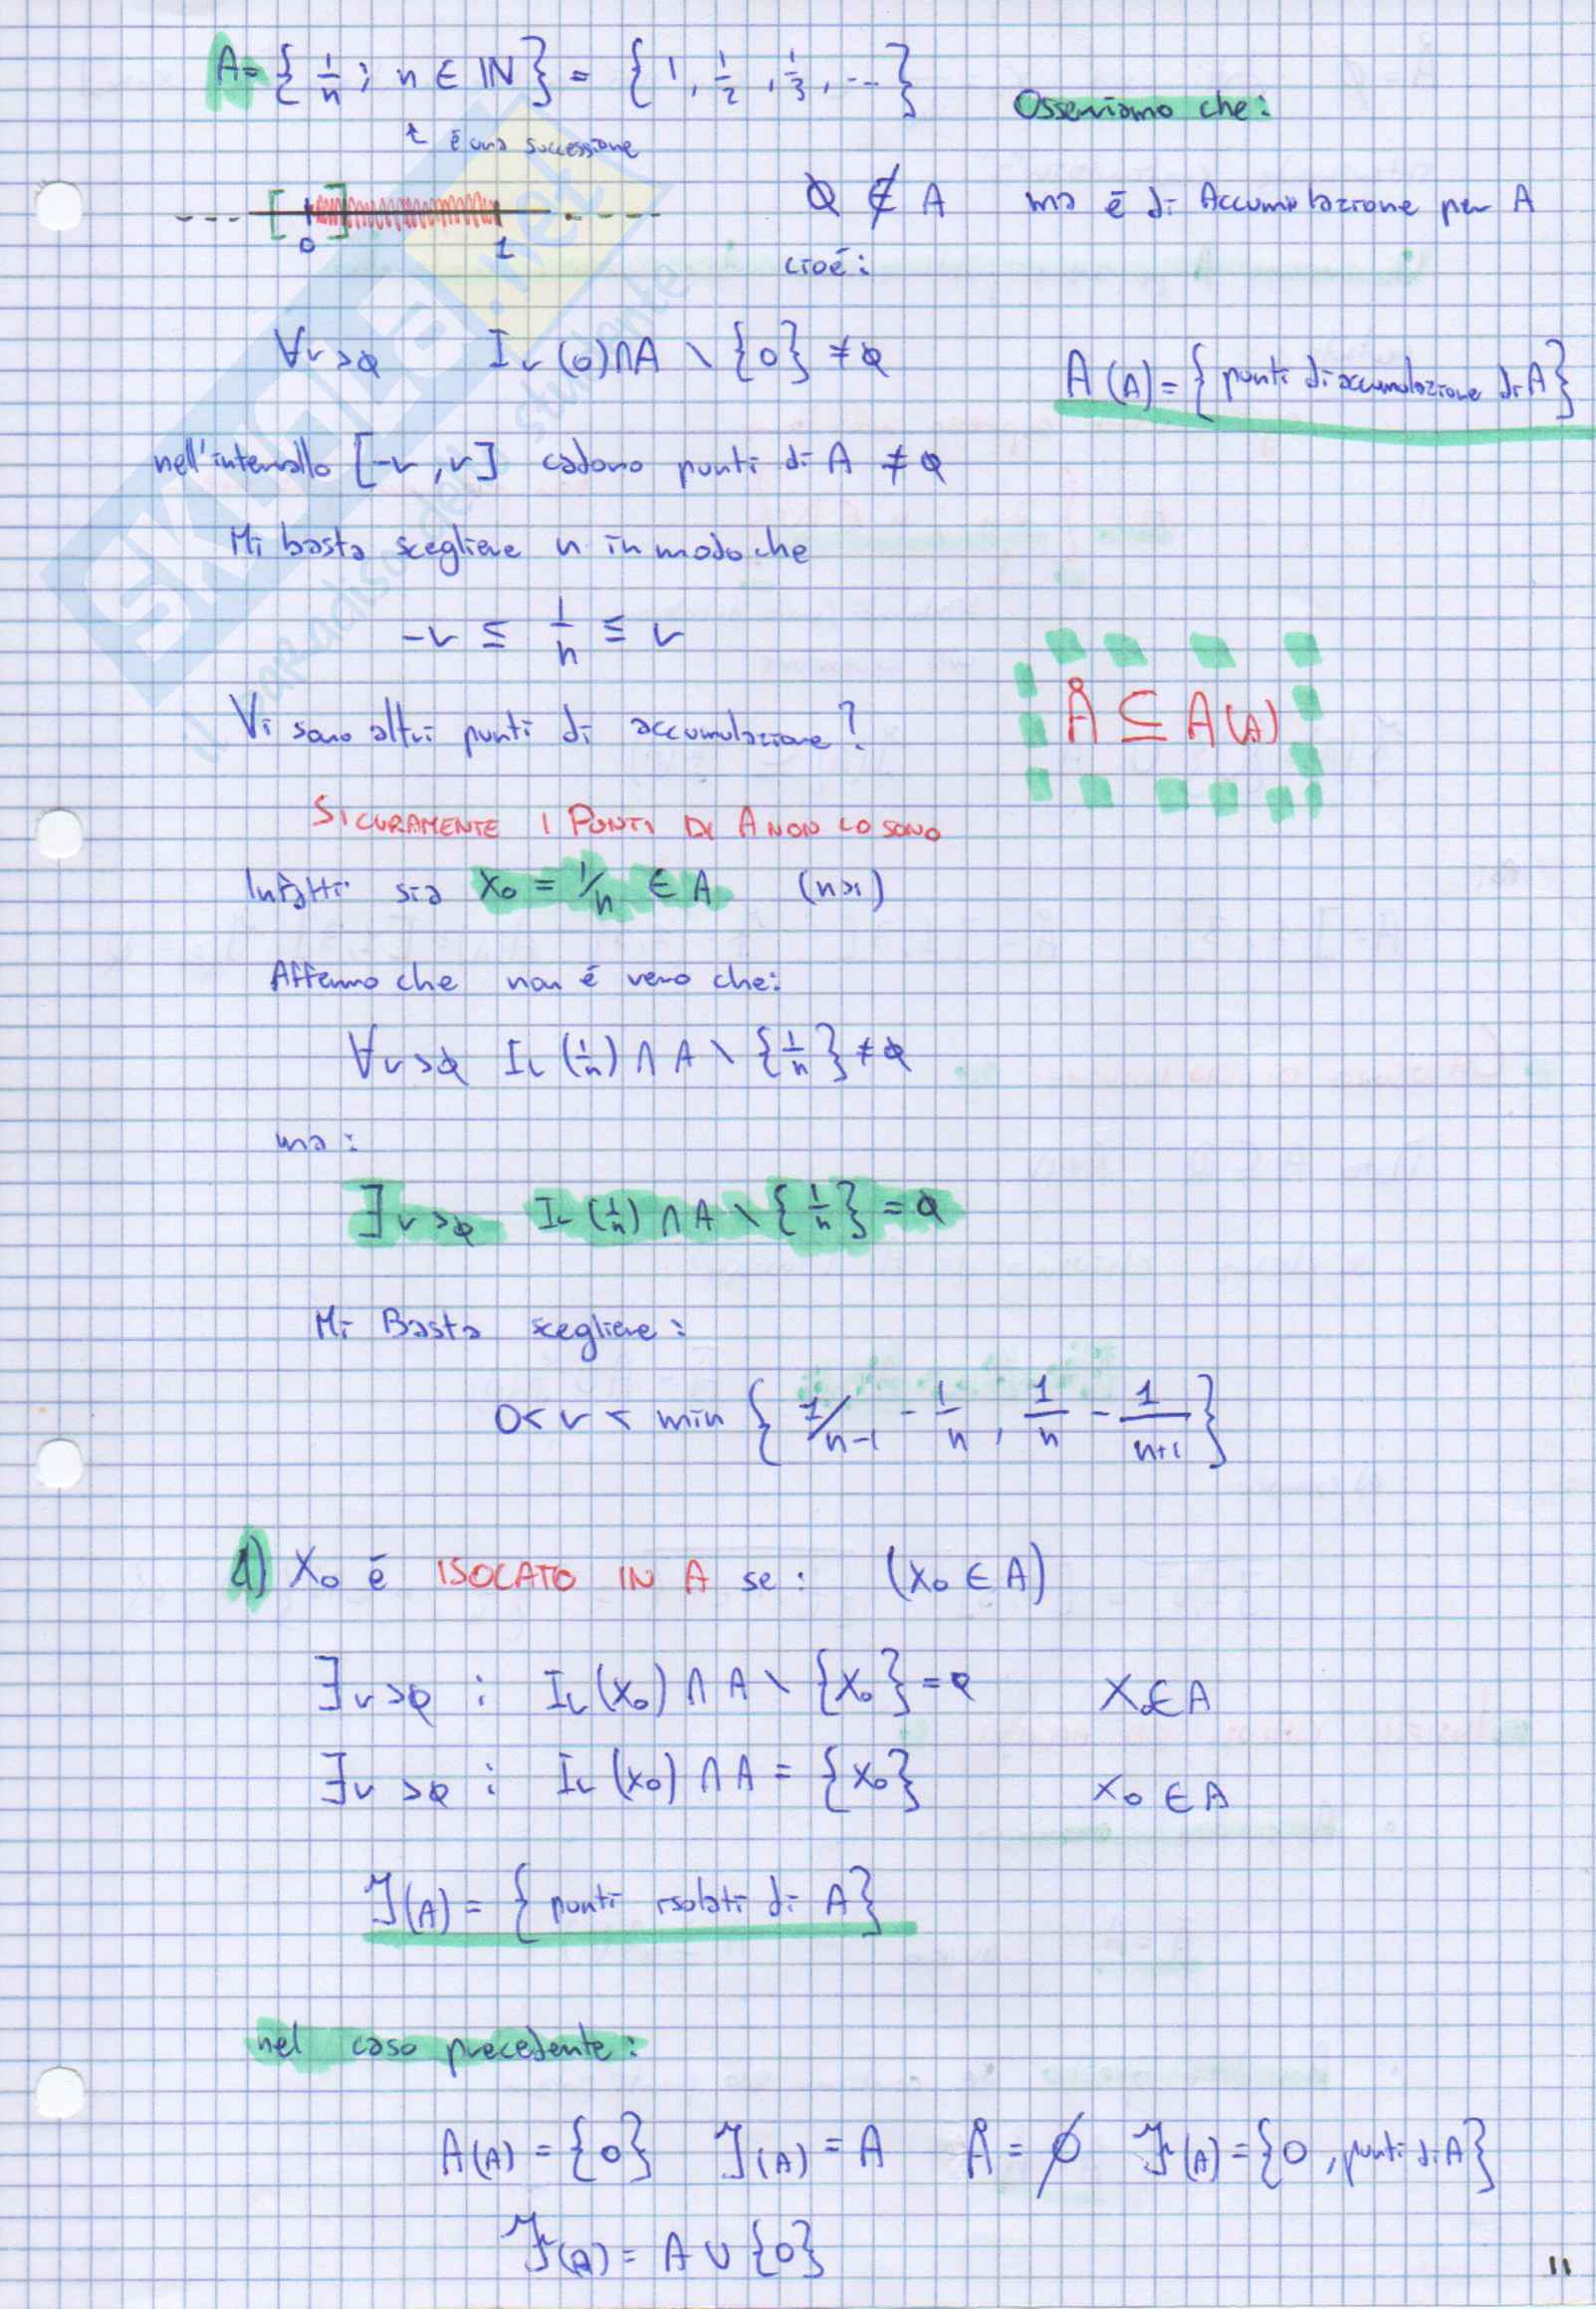 A = { 1/n ; n ∈ IN } = { 1, 1/2, 1/3, ... }
Osserviamo che:
↑ é una successione
[ ] 0 1
0 ∉ A ma é di Accumulazione per A
cioé:
∀r>0 Ir(0)∩A \ {0} ≠ ∅
A(A) = { punti di accumulazione di A}
nell'intervallo [-r, r] cadono punti di A ≠ 0
Mi basta scegliere n in modo che
-r ≤ 1/n ≤ r
Å ⊆ A(A)
Vi sono altri punti di accumulazione?
SICURAMENTE I PUNTI DI A NON LO SONO
Infatti sia x₀ = 1/n ∈ A (n>1)
Affermo che non é vero che:
∀r>0 Ir(1/n) ∩ A \ {1/n} ≠ ∅
ma:
∃r>0 Ir(1/n) ∩ A \ {1/n} = ∅
Mi Basta scegliere:
0 < r < min { 1/n-1 - 1/n , 1/n - 1/n+1 }
d) X₀ é ISOLATO IN A se: (x₀ ∈ A)
∃r>0 : Ir(x₀) ∩ A \ {x₀} = ∅ X₀∈A
∃r>0 : Ir(x₀) ∩ A = {x₀} x₀ ∈ A
I(A) = { punti isolati di A}
nel caso precedente:
A(A) = {0} I(A) = A Å = ∅ F(A) = {0, punti di A}
F(A) = A ∪ {0}
11
SKUOLA.net
il paradiso dello studente